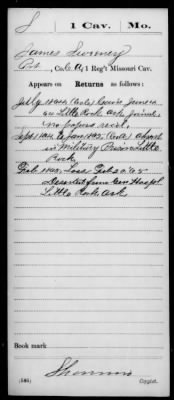 S | 1 Cav. | Mo.
James Sweeney
Pvt., Co. A, 1 Reg't Missouri Cav.
Appears on
Returns as follows:
July 1864 June
on Little Rock Ark joined.
no papers recd.
Sept 1864 to Jan 1865 Absent
in Military Prison Little
Rock.
Feb. 1865, Loss Feb 20 '65
Deserted from Gen Hospl
Little Rock Ark.
Book mark
(546)
Copyist.